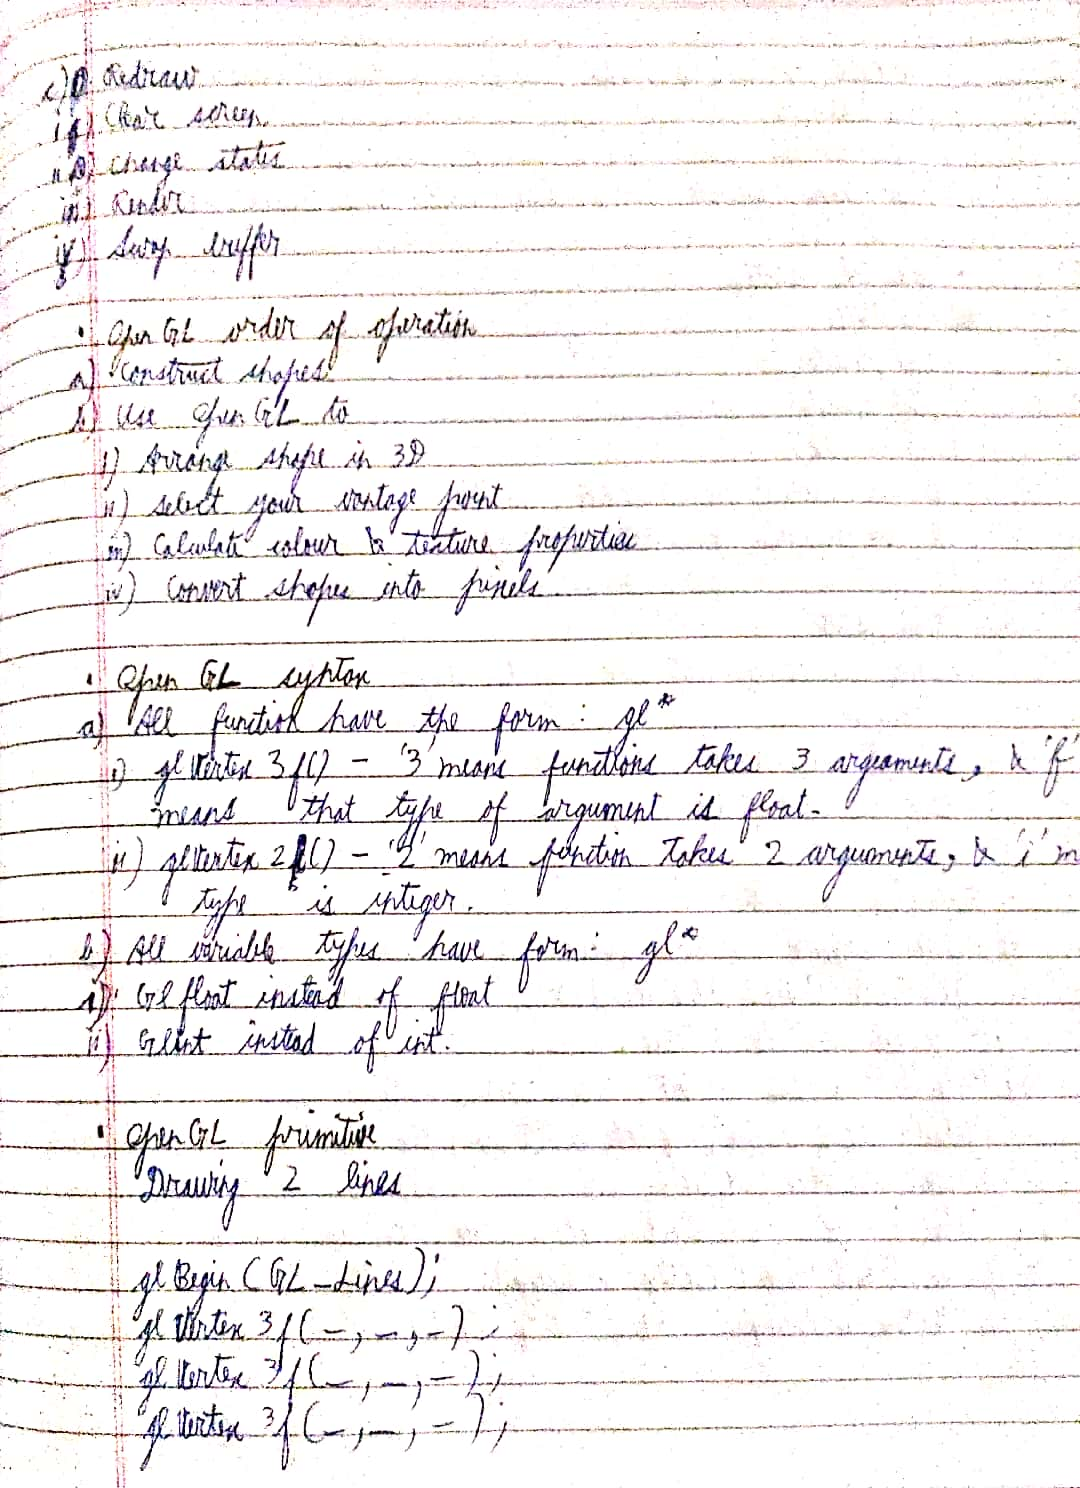 c) Redraw
i) Clear screen
ii) Change states
iii) Render
iv) Swap buffer
• Open GL order of operation
a) Construct shapes
b) Use Open GL to
i) Arrange shape in 3D
ii) select your vantage point
iii) Calculate colour & texture properties
iv) Convert shapes into pixels
• Open GL syntax
a) All function have the form : gl*
i) gl Vertex 3f() - '3' means functions takes 3 arguments, & 'f'
means that type of argument is float.
ii) gl Vertex 2i() - '2' means function takes 2 arguments, & 'i' m
type is integer.
b) All variable types have form : gl*
i) Gl float instead of float
ii) Glint instead of int.
• Open GL primitive
Drawing 2 lines
gl Begin (GL_Lines);
gl Vertex 3f(_,_,_);
gl Vertex 3f(_,_,_);
gl Vertex 3f(_,_,_);